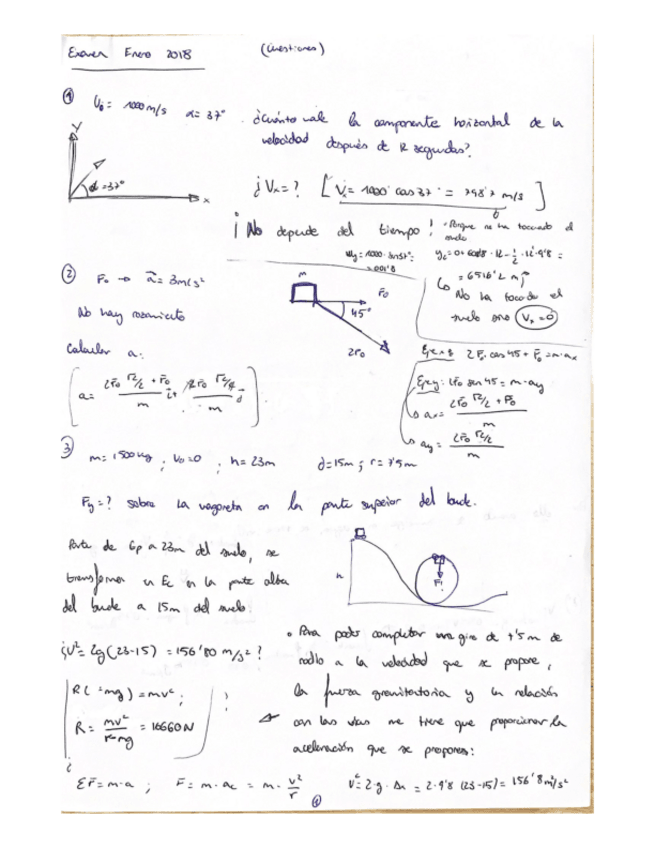 Examen Enero 2018 (Cuestiones)
① V₀ = 1000 m/s α = 37º. ¿Cuánto vale la componente horizontal de la
velocidad después de 12 segundos?
Y
α = 37º
x
¿Vx = ? [Vx = 1000 · cos 37º = 798'7 m/s]
¡No depende del tiempo!
· Porque no ha tocado el
suelo
= 6516'2 m
No ha tocado el
suelo sino Vx = 0
② F₀ → a = 3 m/s²
m
F₀
45º
2F₀
No hay rozamiento
Calcular a:
Eje x: 2F₀ · cos 45 + F₀ = m · ax
Eje y: 2F₀ sen 45 = m · ay
ax = (2F₀ √2/2 + F₀) / m
ay = (2F₀ √2/2) / m
③ m = 1500 kg ; V₀ = 0 ; h = 23m d = 15m ; r = 7'5m
Fy = ? sobre la vagoneta en la parte superior del bucle.
Parte de Ep a 23m del suelo, se
transforma en Ec en la parte alta
del bucle a 15m del suelo.
h
F
¿V² = 2g (23-15) = 156'80 m/s² ?
· Para poder completar un giro de 7'5 m de
radio a la velocidad que se propone,
la fuerza gravitatoria y la relación
con las vías me tiene que proporcionar la
aceleración que se propone:
R (+mg) = mv² ;
R = mv² / r - mg = 16660 N
ΣF = m · a ; F = m · ac = m · v²/r V² = 2 · g · Δh = 2 · 9'8 (23-15) = 156'8 m²/s²
①